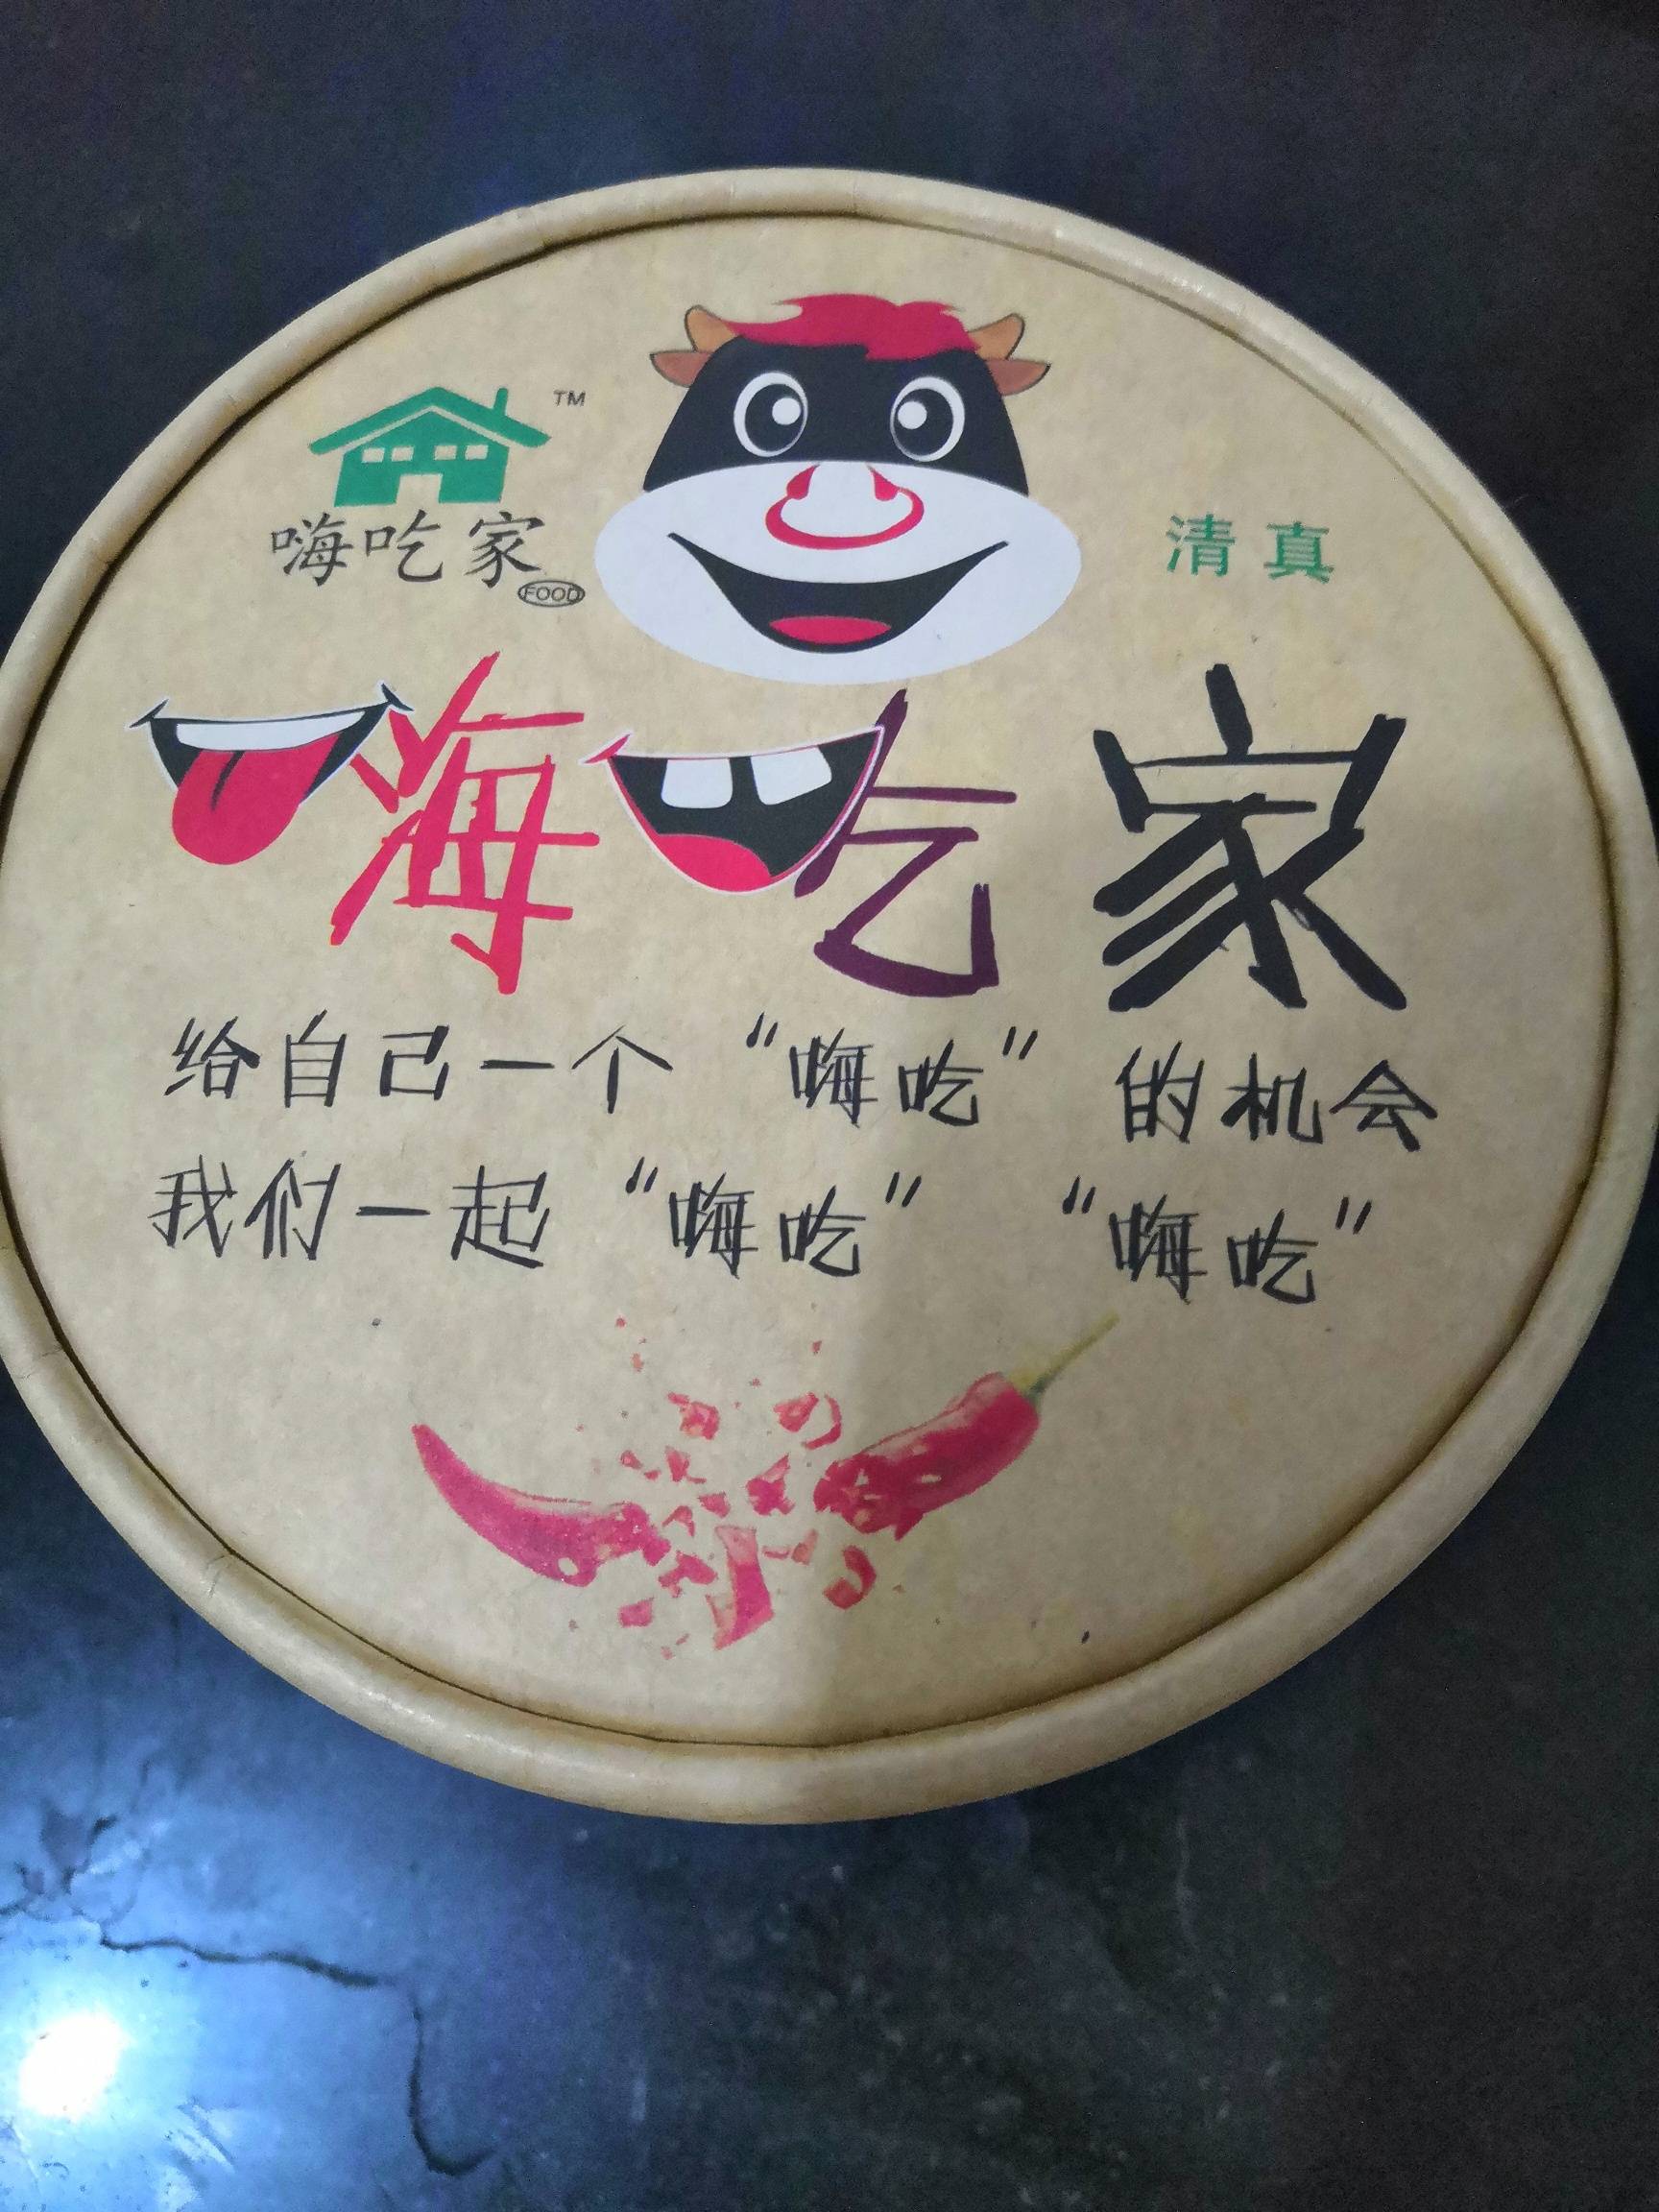 TM
嗨吃家
FOOD
清真
嗨吃家
给自己一个 “嗨吃” 的机会
我们一起 “嗨吃” “嗨吃”